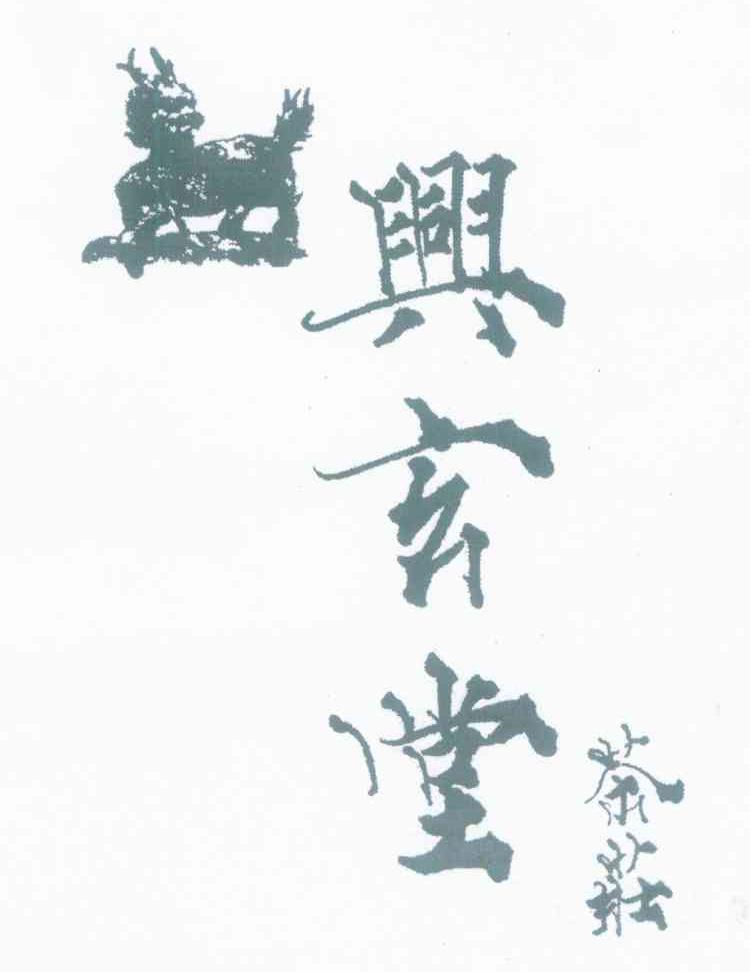 興玄堂
茶莊